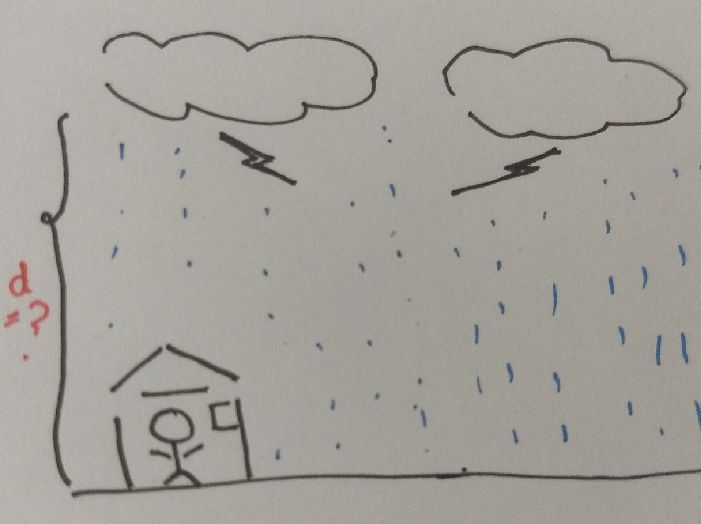 d
=?